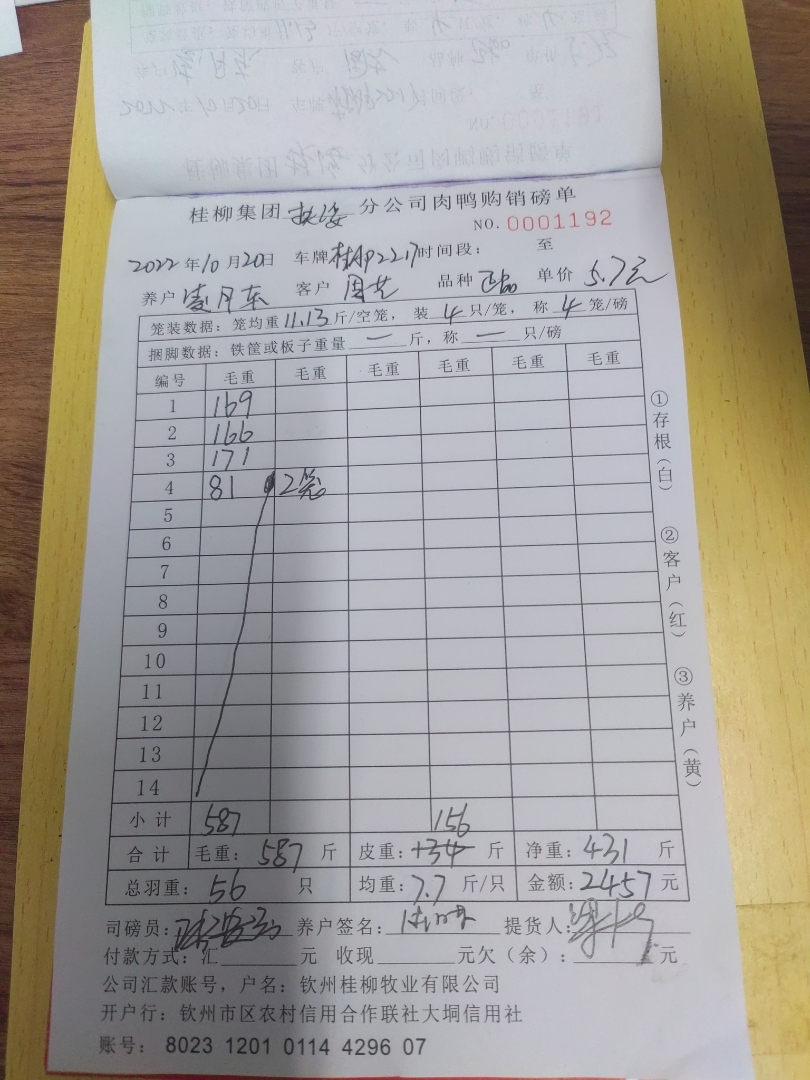 桂柳集团 分公司肉鸭购销磅单
NO. 0001192
2022年10月20日 车牌桂柳2217时间段: 至
养户 凌月东 客户 周 品种 正品 单价 5.7元
笼装数据: 笼均重11.13斤/空笼, 装4只/笼, 称4笼/磅
捆脚数据: 铁筐或板子重量 — 斤, 称 — 只/磅
编号 毛重 毛重 毛重 毛重 毛重 毛重
1 169
2 166
3 171
4 81 2笼
5
6
7
8
9
10
11
12
13
14
小计 587 156
合计 毛重: 587 斤 皮重: 斤 净重: 431 斤
总羽重: 56 只 均重: 7.7 斤/只 金额: 2457 元
司磅员: 养户签名: 提货人:
付款方式: 汇 元 收现 元欠(余): 元
公司汇款账号, 户名: 钦州桂柳牧业有限公司
开户行: 钦州市区农村信用合作联社大垌信用社
账号: 8023 1201 0114 4296 07
①存根(白)
②客户(红)
③养户(黄)